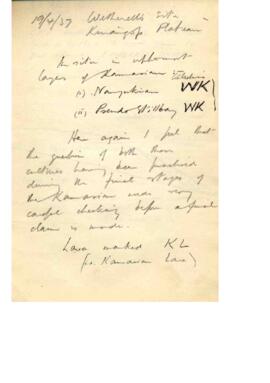 19/4/37 Wetherell's Site
Kinangop Plateau
In situ in uppermost
layers of Kamasian
(i) Nanyukian WK
(ii) Pseudo Stillbay WK
Here again I feel that
the question of both these
cultures having been
during the final stages of
the Kamasian needs very
careful checking before a final
claim is made.
Lava marked KL
(i.e. Kamasian Lava)